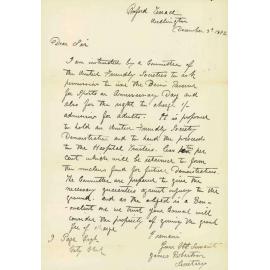 Wellington
December 3rd
Dear Sir
I am instructed by a Committee of
the United Friendly Societies to ask
permission to use the Basin Reserve
for Sports on Anniversary Day and
also for the right to charge 1/
admission for adults. It is proposed
to hold an United Friendly Society
Demonstration and to hand the proceeds
to the Hospital Trustees. Less ten per
cent which will be retained to form
the nucleus fund for future Demonstrations.
The Committee are prepared to give the
necessary guarantees against injury to the
ground. and as the object is a Ben-
evolent one we trust your Council will
consider the propriety of giving the ground
free of charge
I remain
Your Obt Servant
James Robertson
Secretary
J Page Esqr
City Clerk